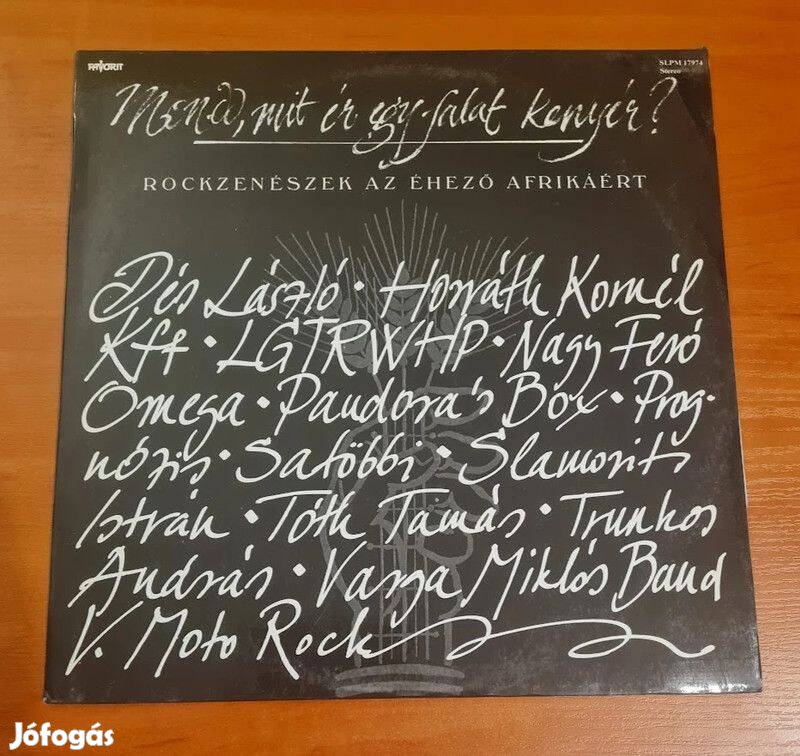 FAVORIT
SLPM 17974
Stereo
Mondd, mit ér egy falat kenyér?
ROCKZENÉSZEK AZ ÉHEZŐ AFRIKÁÉRT
Dés László • Horváth Kornél
Kft • LGTRWHP • Nagy Feró
Omega • Pandora's Box • Prog-
nózis • Satöbbi • Slamovits
István • Tóth Tamás • Trunkos
András • Varga Miklós Band
V. Moto Rock
Jófogás